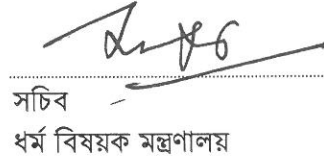 সচিব
ধর্ম বিষয়ক মন্ত্রণালয়